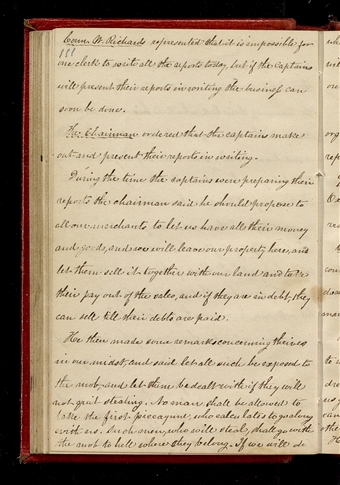 Coun. W. Richards represented that it is impossible for
one clerk to write all the reports today, but if the Captains
will present their reports in writing the business can
soon be done.
The Chairman ordered that the captains make
out and present their reports in writing.
During the time the captains were preparing their
reports the chairman said he should propose to
all our merchants to let us have all their money
and goods, and we will leave our property here, and
let them sell it together with our land and take
their pay out of the sales, and if they are in debt they
can sell till their debts are paid.
He then made some remarks concerning thieves
in our midst, and said let all such be exposed to
the mob, and let them be dealt with if they will
not quit stealing. No man shall be allowed to
take the first picayune, who calculates to go along
with us. Such men, who will steal, shall go with
the mob to hell where they belong. If we will do